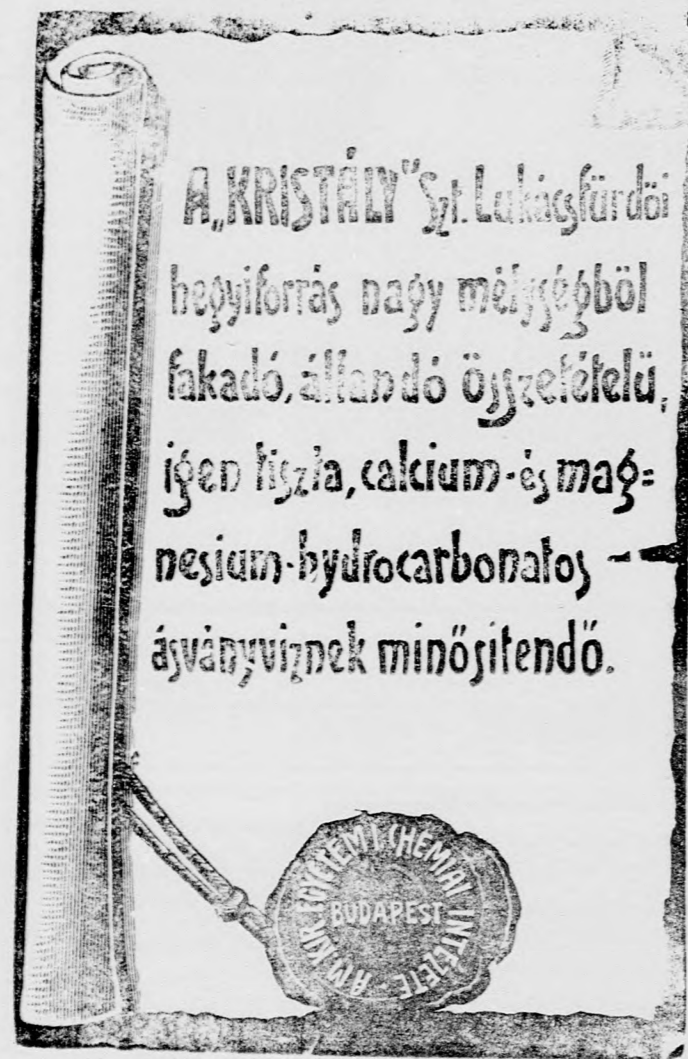 A „KRISTÁLY” Szt. Lukácsfürdöi
hegyiforrás nagy mélységböl
fakadó, állandó összetételü,
igen tiszta, calcium-és mag=
nesium-hydrocarbonatos –
ásványviznek minősitendő.
A M. KIR. EGYETEM I. CHEMIAI INTÉZETE
BUDAPEST